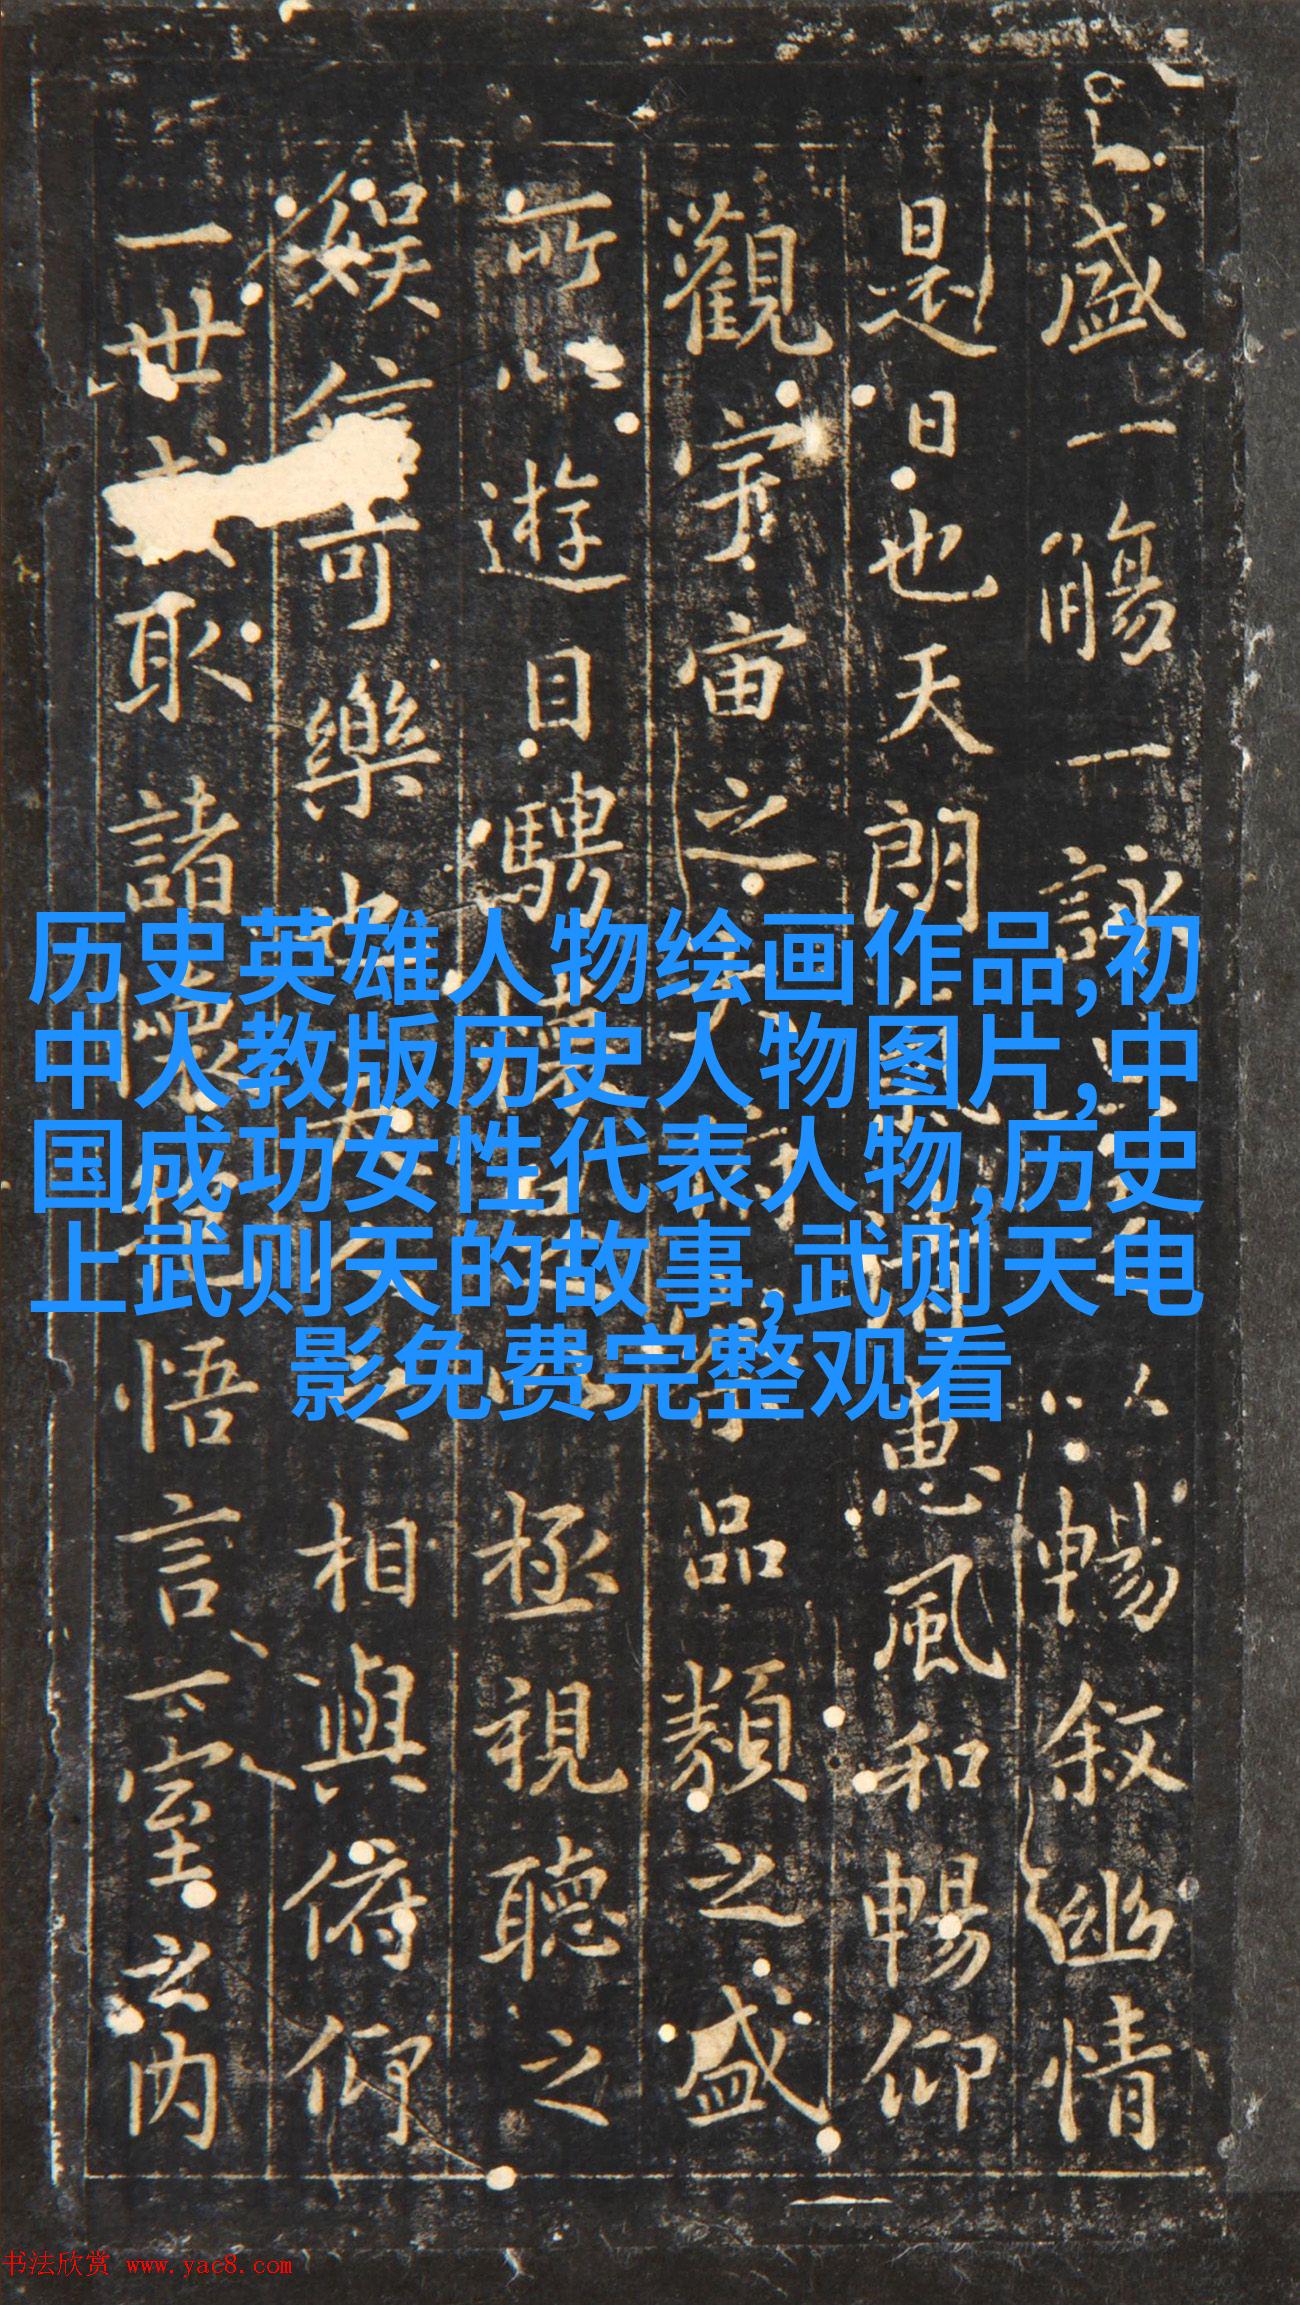 盛一觴一詠以暢叙幽情
是日也天朗清惠風和暢仰
觀宇宙之大品類之盛
所以遊目騁懷極視聽之
娱信可樂也夫之相與俯仰
一世或取諸懷悟言一室之内
历史英雄人物绘画作品,初
中人教版历史人物图片,中
国成功女性代表人物,历史
上武则天的故事,武则天电
影免费完整观看
书法欣赏 www.yac8.com